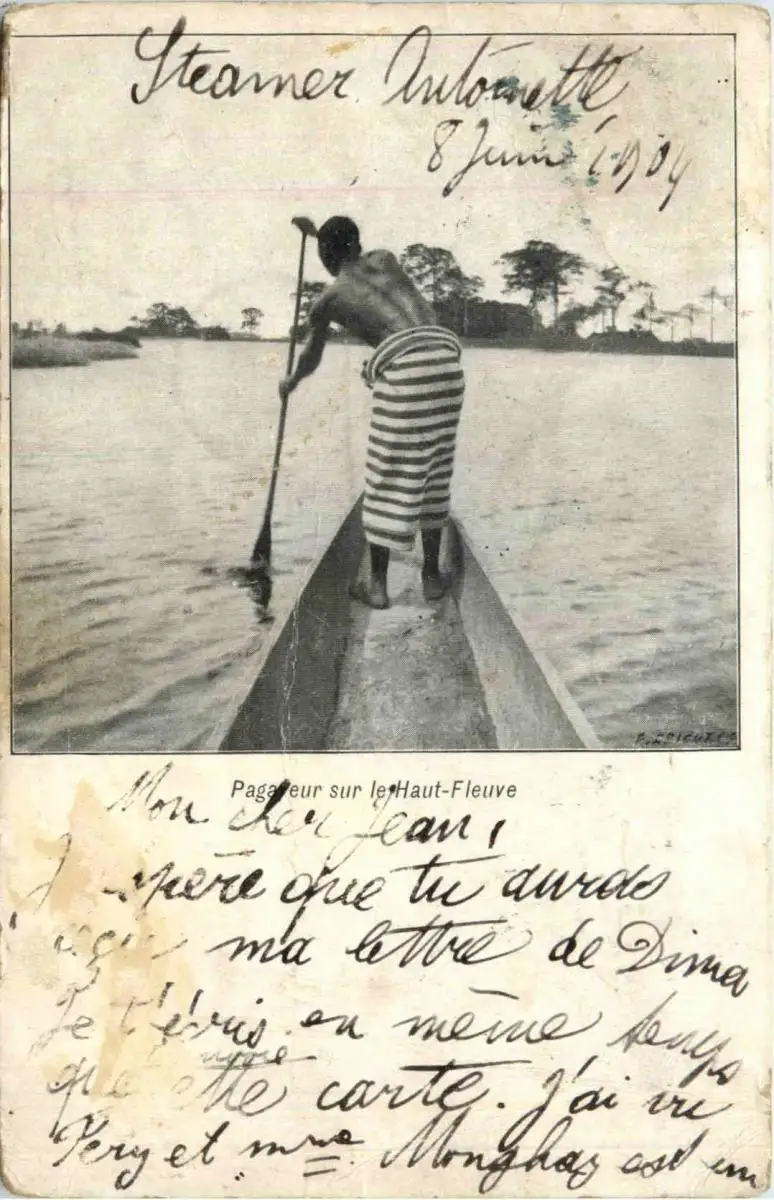 Steamer Antoinette
8 Juin 1904
Pagayeur sur le Haut-Fleuve
Mon cher Jean,
J'espère que tu auras
reçu ma lettre de Dima
Je t'écris en même temps
que cette carte. J'ai vu
et mme est un